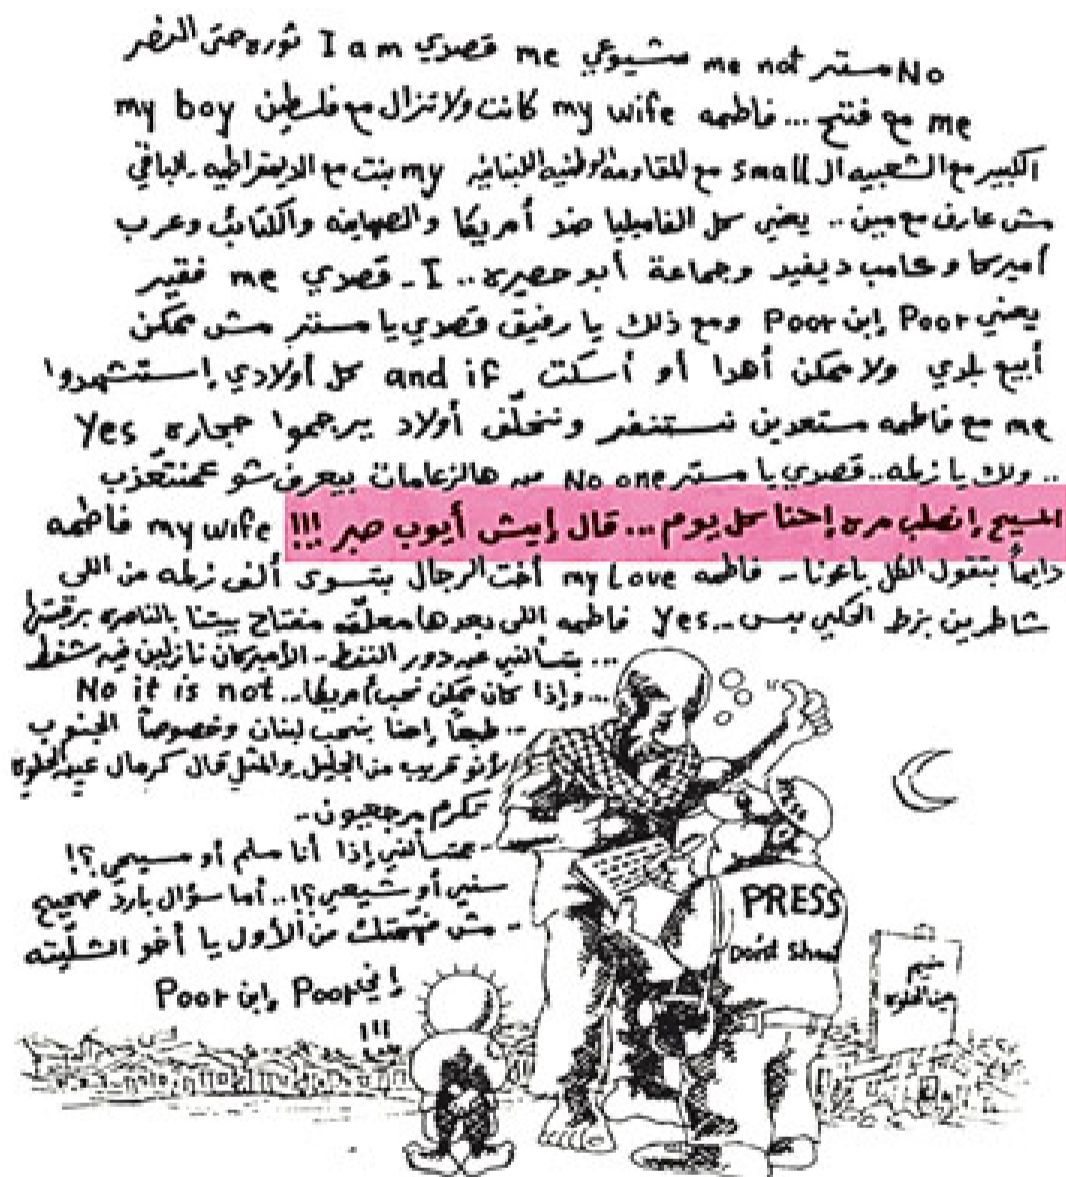 No مستر me not شيوعي me قصدي I am ثوره حتى النصر
me مع فتح ... فاطمه my wife كانت ولا تزال مع فلسطين my boy
الكبير مع الشعبيه ال small مع المقاومه الوطنيه اللبنانيه my بنت مع الديمقراطيه - الباقي
مش عارف مع مين .. يعني كل الفاميليا ضد أمريكا والصهاينه والكتائب وعرب
أميركا وكامب ديفيد وجماعة أبو حصيره .. I - قصدي me فقير
يعني Poor إبن Poor ومع ذلك يا رفيق قصدي يا مستر مش ممكن
أبيع بلدي ولا ممكن أهدا أو أسكت and if كل أولادي إستشهدوا
me مع فاطمه مستعدين نستنفر ونخلّف أولاد يرجموا حجاره Yes
.. ولك يا زلمه .. قصدي يا مستر No one من هالزعامات بيعرف شو عمنتعذب
المسيح إنصلب مره إحنا كل يوم ... قال إيش أيوب صبر !!!
my wife فاطمه
دايماً بتقول الكل باعونا - فاطمه my Love أخت الرجال بتسوى ألف زلمه من اللي
شاطرين بزط الحكي بس .. Yes فاطمه اللي بعدها معلقه مفتاح بيتنا بالناصره برقبتها
... بتسألني عن دور النفط - الأميركان نازلين فيه شفط
... وإذا كان ممكن نحب أمريكا .. No it is not
.. طبعاً إحنا بنحب لبنان وخصوصاً الجنوب
لأنو قريب من الجليل والمثل قال كرمال عين الحلوه
تكرم مرجعيون -
- عمتسألني إذا أنا مسلم أو مسيحي ؟!
سني أو شيعي ؟! .. أما سؤال بارد صحيح
- مش فهمتك من الأول يا أخو الشليته
إني Poor إبن Poor
!!!
PRESS
PRESS
مخيم
عين الحلوه